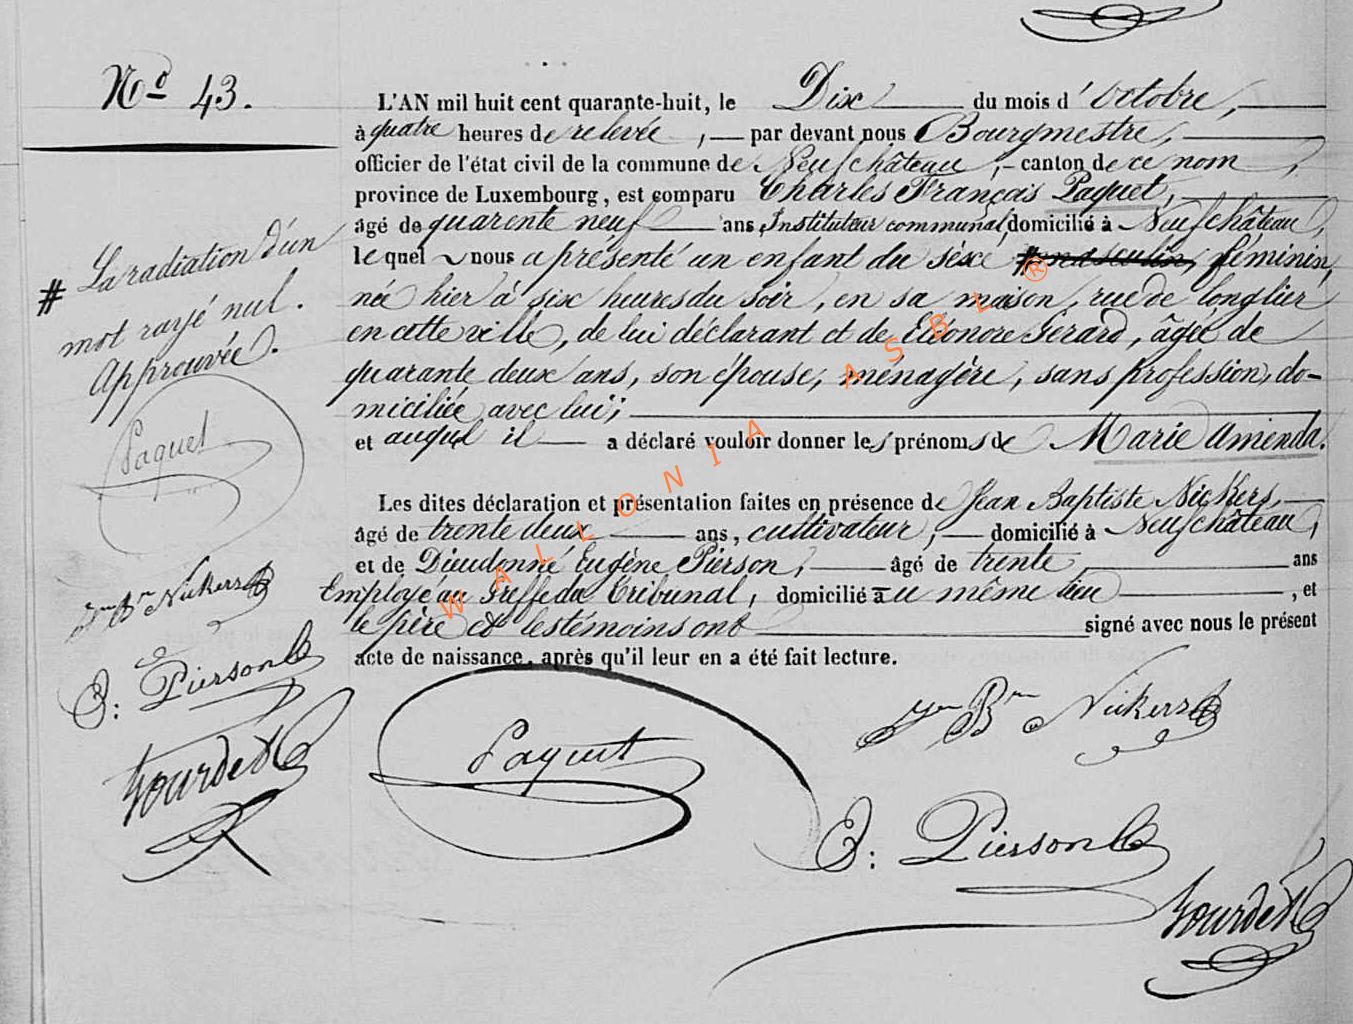 Nº 43.
L'AN mil huit cent quarante-huit, le Dix du mois d'Octobre,
à quatre heures de relevée, par devant nous Bourgmestre,
officier de l'état civil de la commune de Neufchâteau, canton de ce nom,
province de Luxembourg, est comparu Charles François Paquet,
âgé de quarente neuf ans, Instituteur communal, domicilié à Neufchâteau,
le quel nous a présenté un enfant du sèxe # masculin, féminin,
née hier à six heures du soir, en sa maison, rue de longlier
en cette ville, de lui déclarant et de Eléonore Gérard, âgée de
quarante deux ans, son épouse, ménagère, sans profession, do-
miciliée avec lui;
et auquel il a déclaré vouloir donner les prénoms de Marie Amenda.
Les dites déclaration et présentation faites en présence de Jean Baptiste Nickers,
âgé de trente deux ans, cultivateur, domicilié à Neufchâteau,
et de Dieudonné Eugène Pierson, âgé de trente ans
Employé au Greffe du Tribunal, domicilié au même lieu, et
le père et les témoins ont signé avec nous le présent
acte de naissance, après qu'il leur en a été fait lecture.
# La radiation d'un
mot rayé nul.
Approuvée.
Paquet
Jean Bte Nickers
E: Pierson
Gourdet
Paquet
Jean Bte Nickers
E: Pierson
Gourdet
WALLONIA ASBL ®